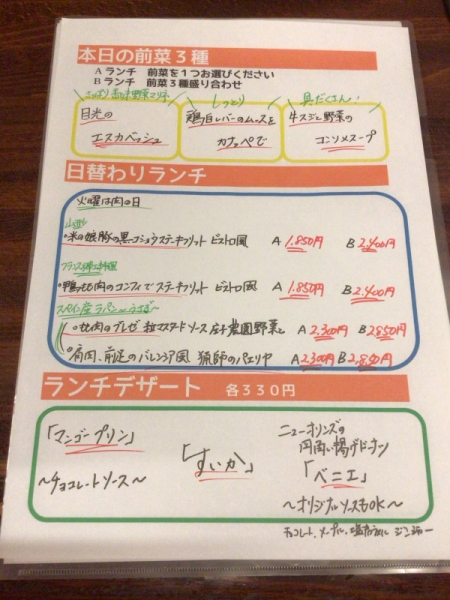 本日の前菜3種
Aランチ 前菜を1つお選びください
Bランチ 前菜3種盛り合わせ
しっとり
具だくさん
目光の
エスカベッシュ
鶏白レバーのムースを
カナッペで
牛スジと野菜の
コンソメスープ
日替わりランチ
火曜は肉の日
・米の娘豚の黒コショウステーキフリット ビストロ風 A 1,850円 B 2,400円
・鴨もも肉のコンフィでステーキフリット ビストロ風 A 1,850円 B 2,400円
スペイン産ラパン
・もも肉のブレゼ 粒マスタードソース 農園野菜と A 2,300円 B 2,850円
・肩肉、前足のバレンシア風 猟師のパエリヤ A 2,300円 B 2,850円
ランチデザート 各330円
「マンゴープリン」
~チョコレートソース~
「すいか」
ニューオリンズの
四角い揚げドーナツ
「ベニエ」
~オリジナルソースもOK~
チョコレート、メープル、塩キャラメル